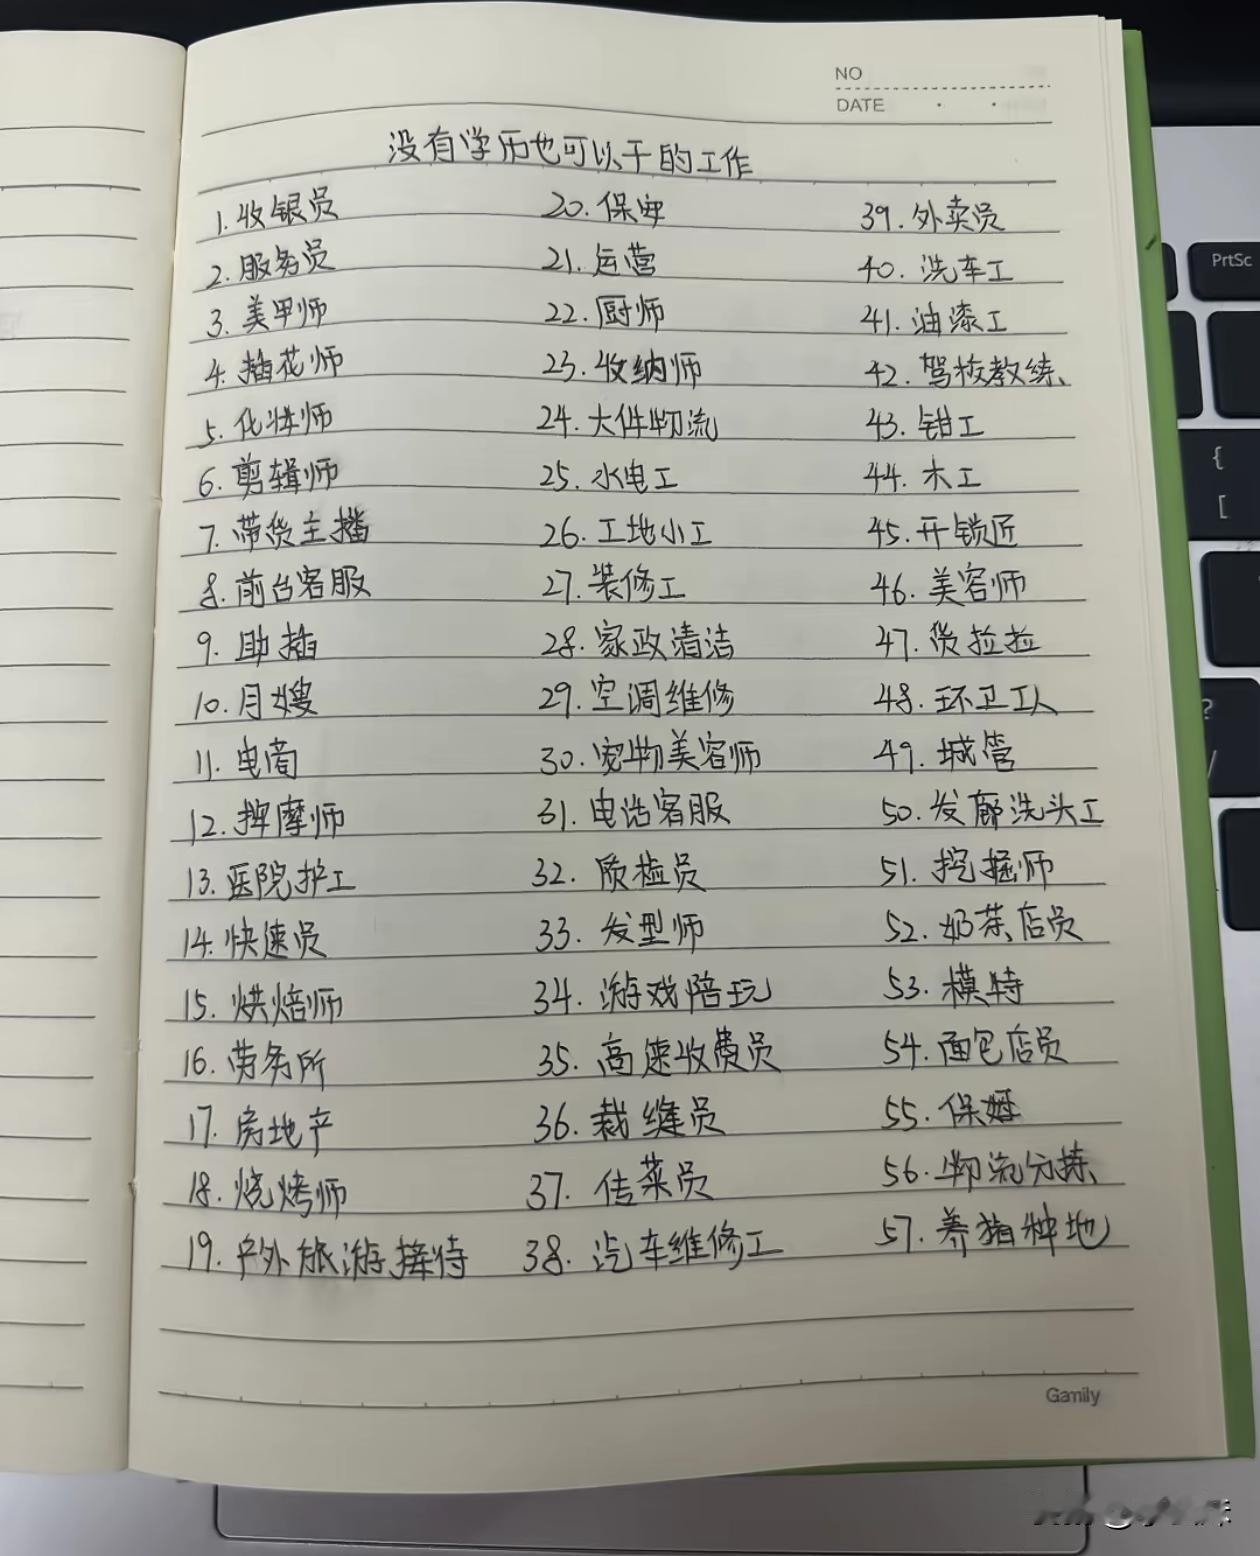 NO
DATE
没有学历也可以干的工作
1.收银员
2.服务员
3.美甲师
4.插花师
5.化妆师
6.剪辑师
7.带货主播
8.前台客服
9.助播
10.月嫂
11.电商
12.按摩师
13.医院护工
14.快速员
15.烘焙师
16.劳务所
17.房地产
18.烧烤师
19.户外旅游接待
20.保安
21.运营
22.厨师
23.收纳师
24.大件物流
25.水电工
26.工地小工
27.装修工
28.家政清洁
29.空调维修
30.宠物美容师
31.电话客服
32.质检员
33.发型师
34.游戏陪玩
35.高速收费员
36.裁缝员
37.传菜员
38.汽车维修工
39.外卖员
40.洗车工
41.油漆工
42.驾校教练
43.钳工
44.木工
45.开锁匠
46.美容师
47.货拉拉
48.环卫工人
49.城管
50.发廊洗头工
51.挖掘师
52.奶茶店员
53.模特
54.面包店员
55.保姆
56.物流分拣
57.养猪种地
Gamily
PrtSc
{
[
?
/